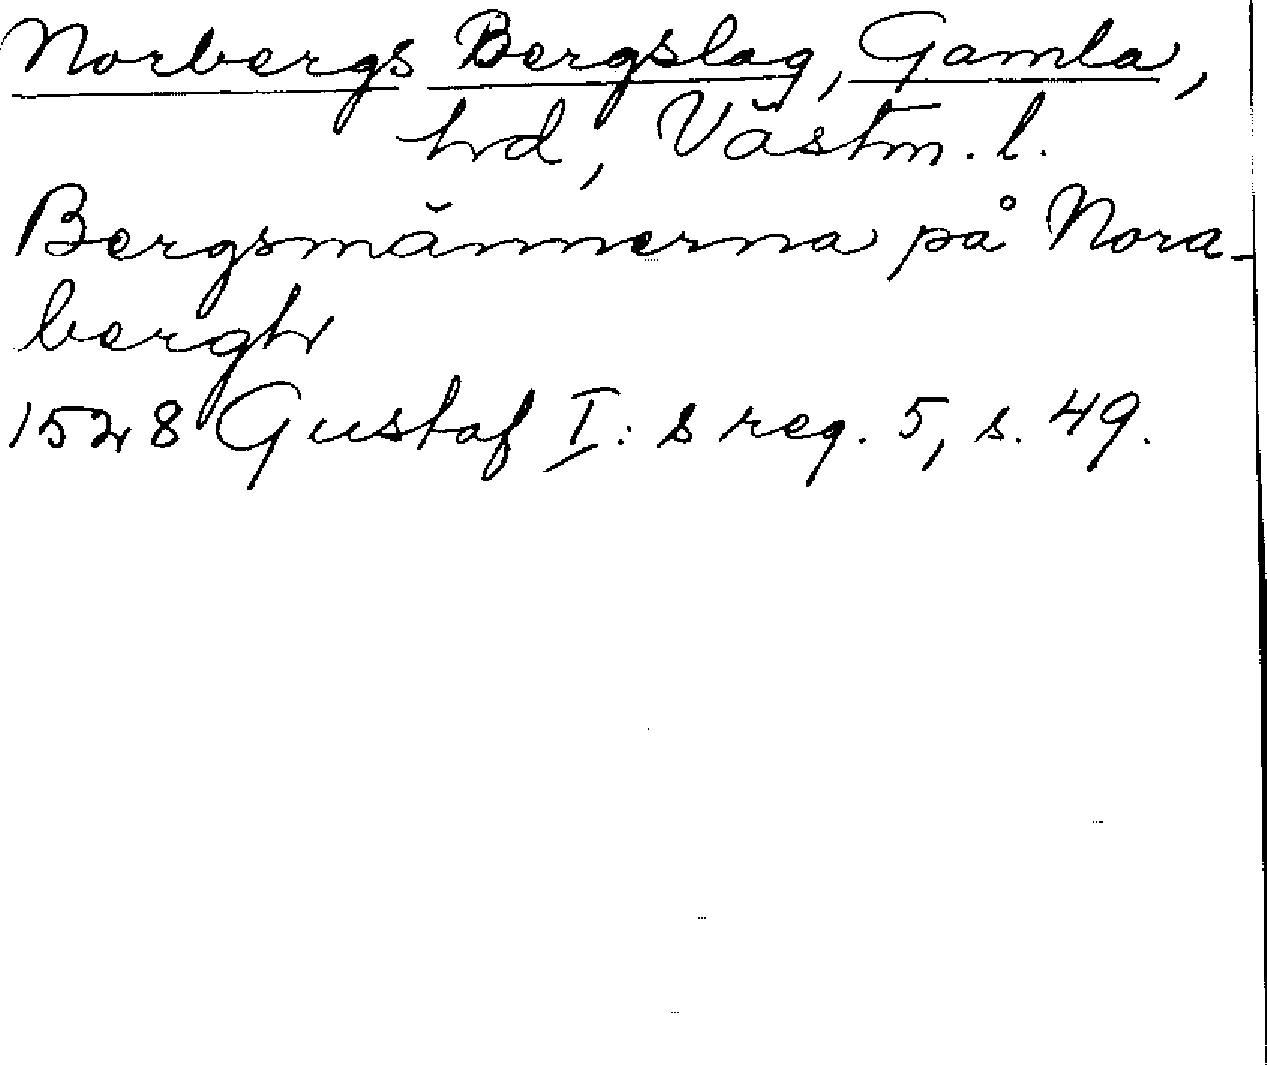 Norbergs Bergslag, Gamla,
hrd, Västm. l.
Bergsmännerna på Nora-
bergh
1528 Gustaf I:s reg. 5, s. 49.